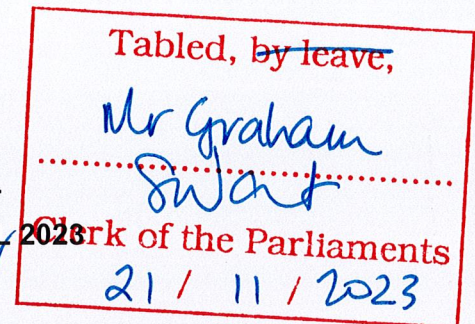 Tabled, by leave,
Mr Graham
Swart
2023
Clerk of the Parliaments
21 / 11 / 2023